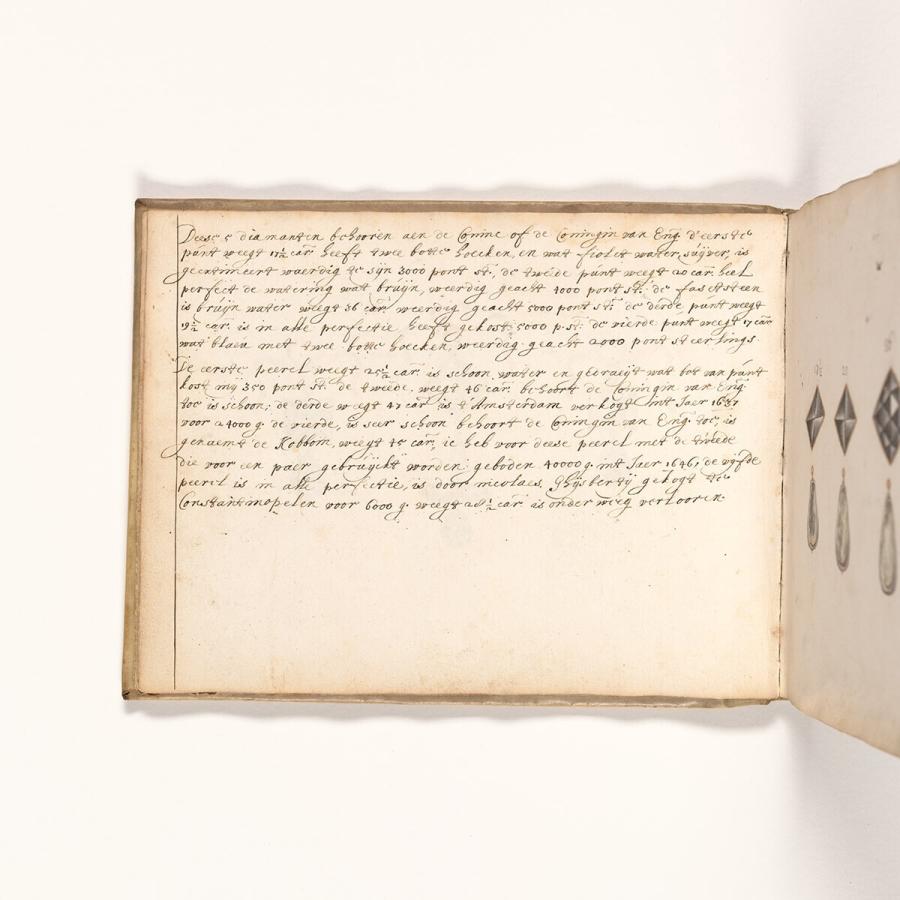 Deese 5 diamanten behooren aen de Coninc of de Coningin van Eng: d'eerste
punt weegt 17½ car: heeft twee botte hoecken, en wat fiolet water, suijver, is
geextimeert waerdig te sijn 3000 pont st:, de tweede punt weegt 20 car: heel
perfect de watering wat bruijn, weerdig geacht 4000 pont st: de fasetsteen
is bruijn water weegt 36 car: weerdig geacht 5000 pont st: de derde punt weegt
19½ car: is in alle perfectie heeft gekost 5000 p. st: de vierde punt weegt 17 car:
wat blau met twee botte hoecken, weerdig geacht 2000 pont steerlings.
De eerste peerel weegt 25½ car: is schoon, water en gedraeijt wat bot van punt
kost mij 350 pont st: de tweede, weegt 46 car: behoort de Coningin van Eng:
toe is schoon; de derde weegt 47 car is t'Amsterdam verkogt int Jaer 1637
voor 24000 g: de vierde, is seer schoon behoort de Coningin van Eng: toe, is
genaemt de Kobbom, weegt 45 car, ic heb voor deese peerel met de tweede
die voor een paer gebruijckt worden: geboden 40000 g. int Jaer 1646, de vijfde
peerel is in alle perfectie, is door nicolaes Ghijsbertij gekogt tot
Constantinopelen voor 6000 g. weegt 28½ car is onder weeg verlooren
19½ 20